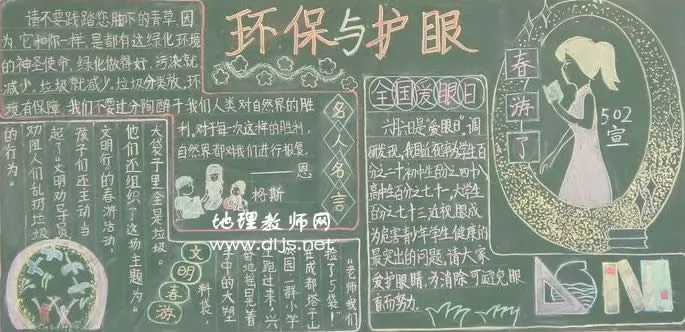 环保与护眼
请不要践踏您脚下的青草,因
为,它和你一样,是都有这绿化环境
的神圣使命,绿化做得好,污染就
减少,垃圾就减少,垃圾分类放,环
境有保障,
我们不要过分陶醉于我们人类对自然界的胜
利。对于每一次这样的胜利,
自然界都对我们进行报复。
——恩
格斯
名人名言
文明春游
"老师我们
捡了5袋!"
在成都塔子山
公园一群小学
生跑过来,兴
奋地摇晃着
手中的大塑
料袋,
大袋子里全是垃圾。
他们还组织了这场主题为"
文明行的春游活动,
孩子们还主动当
起了"文明劝导员"
劝阻人们乱扔垃圾
的行为。
全国爱眼日
六月六日是"爱眼日",调
研发现,我国近视率为学生百
分之二十初中生的分之四十,
高中生百分之七十,大学生
百分之七十三近视,眼成
为危害青少年学生健康的
最突出的问题,请大家
爱护眼睛,为消除可避免眼
盲而努力。
春游了
502
宣
地理教师网
www.dljs.net